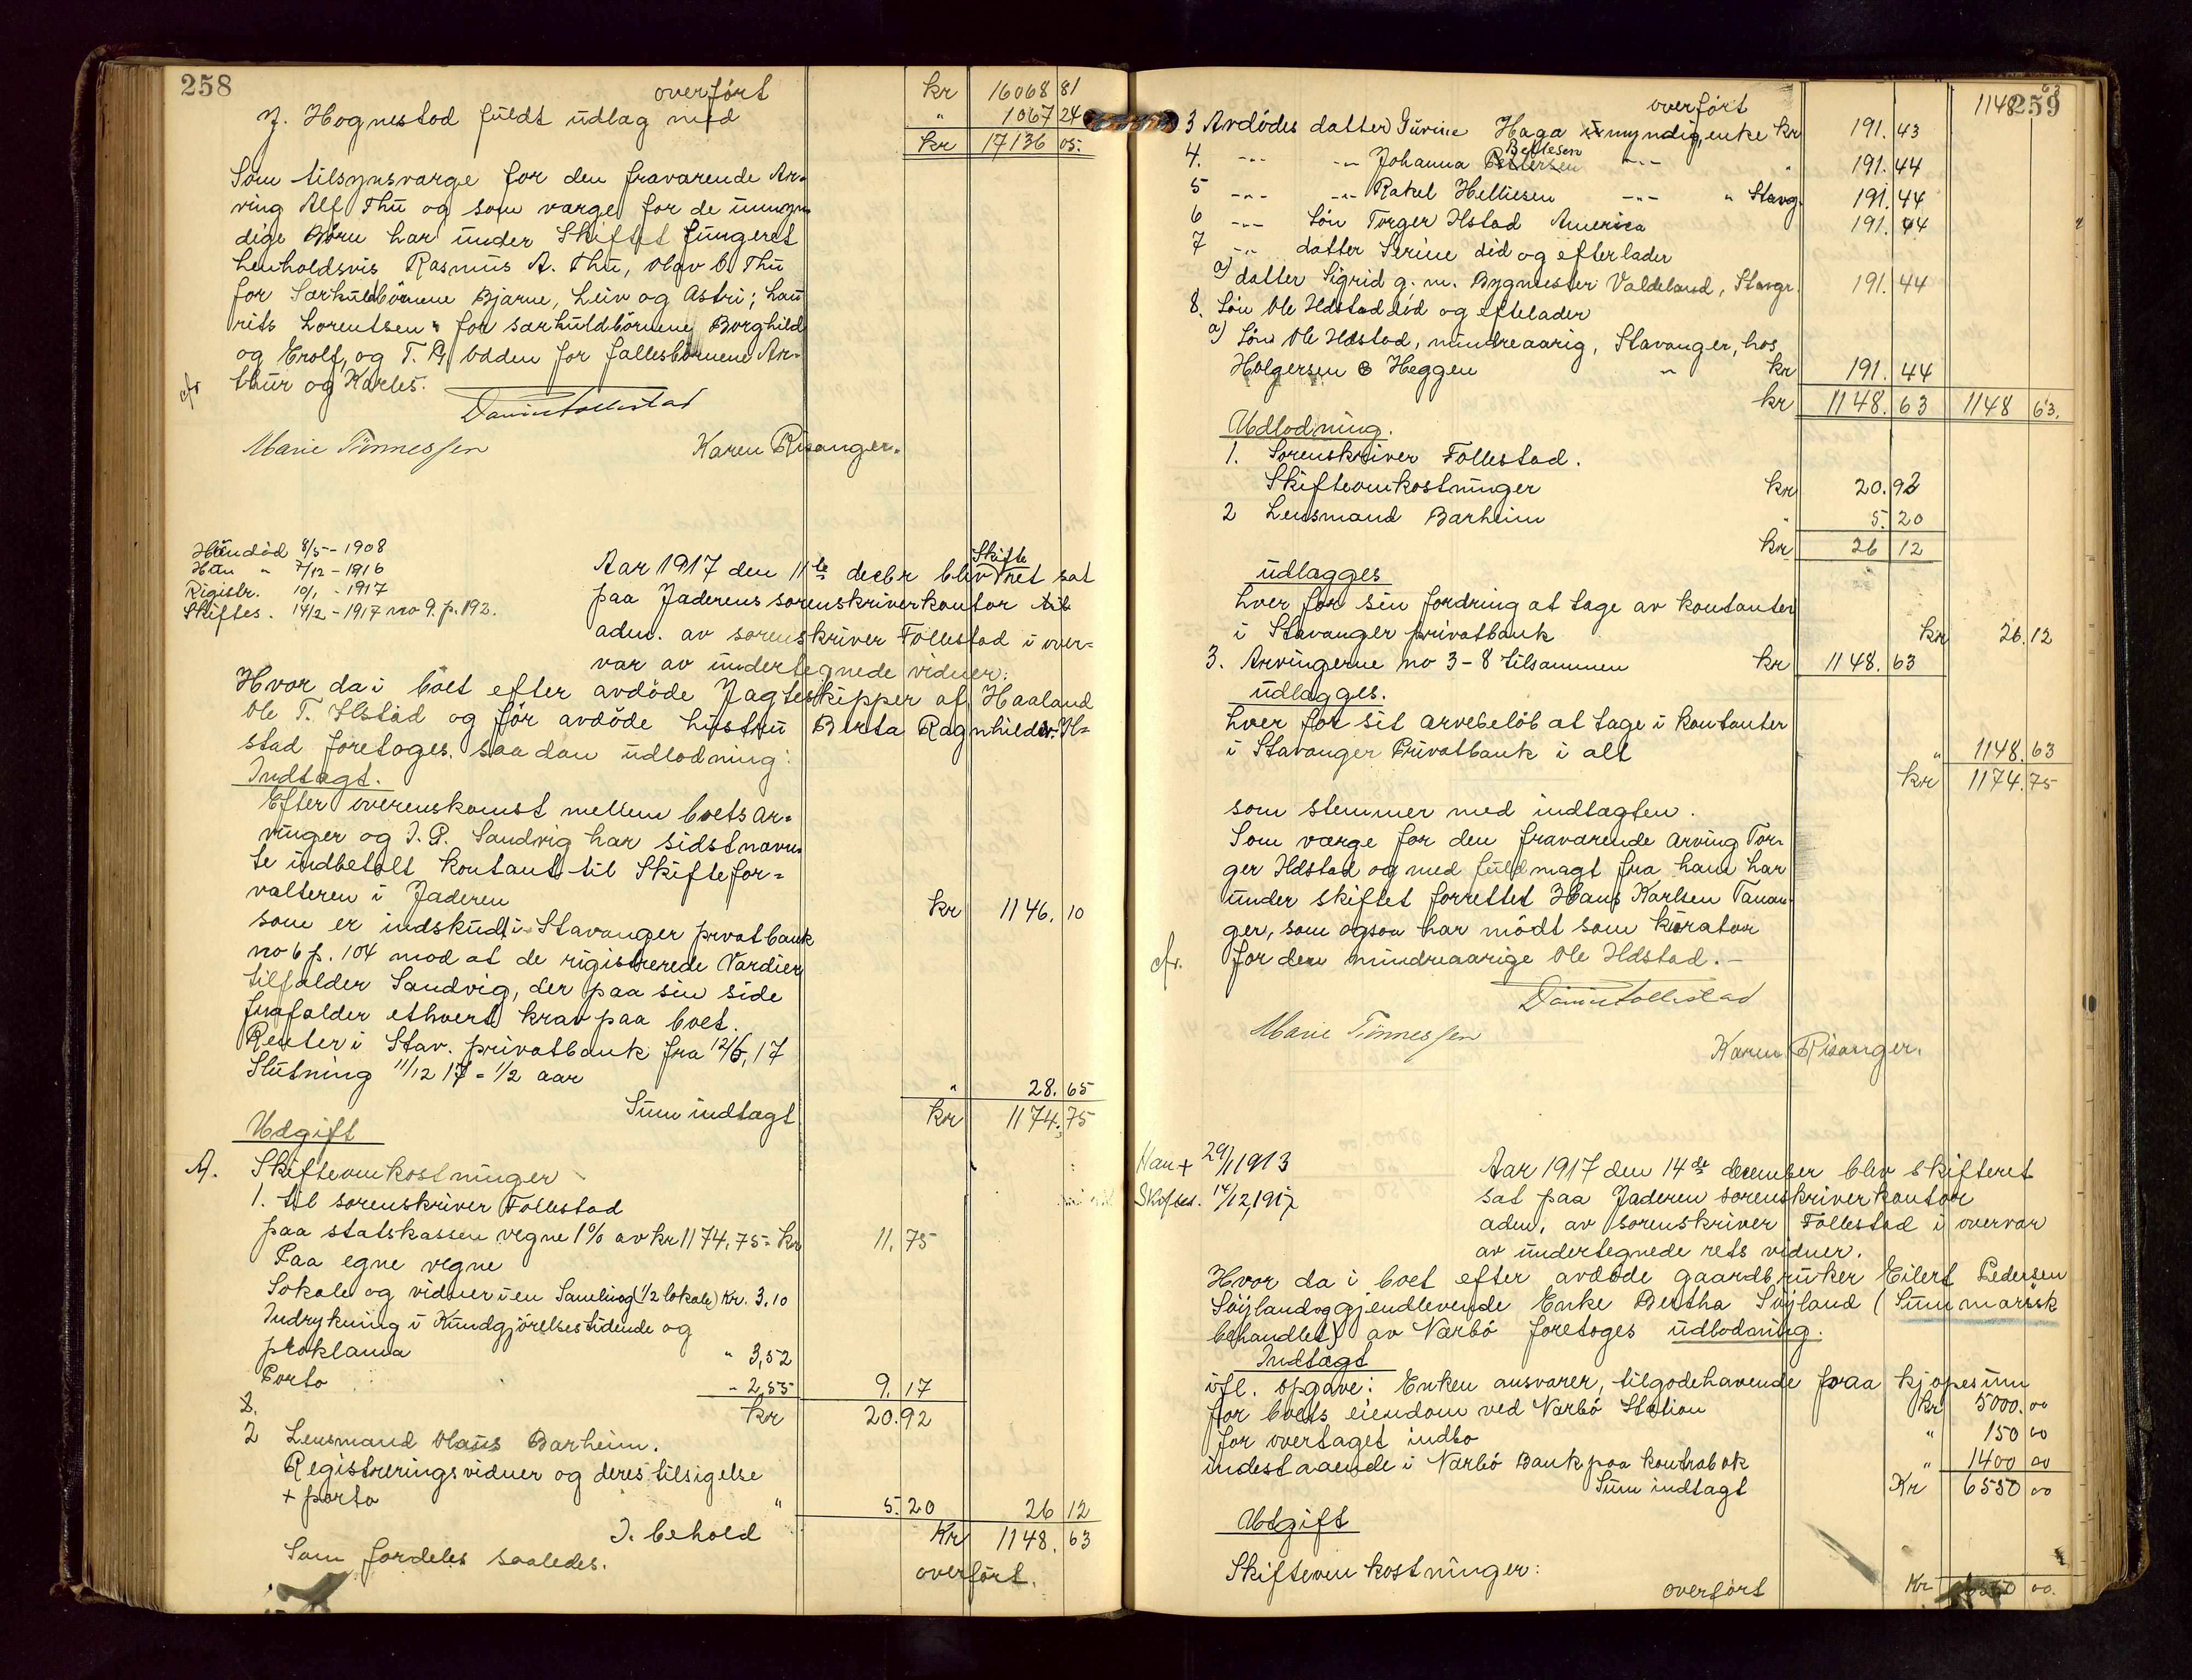 258
overført kr 16068 81
J. Hognestad fuldt udlag med " 1067 24
kr 17136 05.
Som tilsynsvarge for den fravarende Ar-
ving Alf Thu og som varge for de umyn-
dige Børn har under Skiftet fungeret
henholdsvis Rasmus A. Thu, Olav B. Thu
for Sarkuldbørnene Bjarne, Leiv og Astri; Lau
rits Lorentsen for sarkuldbørnene Borghild
og Erolf, og T. G. Odden for fallesbørnene Ar-
cfr thur og Karles.
Daniel Follestad
Marie Tønnessen Karen Risanger.
Hundød 8/5 - 1908
Han " 7/12 - 1916
Rigistr. 10/1 - 1917
Skiftes. 14/2 - 1917 no 9. p. 192.
Aar 1917 den 11te decbr blev Skifte ret sat
paa Jaderens sorenskriverkontor
adm. av sorenskriver Follestad i over-
var av undertegnede vidner.
Hvor da i boet efter avdøde Jagteskipper af Haaland
Ole T. Ilstad og før avdøde hustru Berta Ragnhild Il-
stad foretoges saadan udlodning:
Indtagt.
Efter overenskomst mellem boets ar-
vinger og I. P. Sandvig har sidstnavn
te indbetalt kontant til Skiftefor-
valteren i Jaderen kr 1146. 10
som er indskudt i Stavanger prvatbank
no 6 p. 104 mod at de rigistrerede Vardier
tilfalder Sandvig, der paa sin side
frafalder ethvert krav paa boet.
Renter i Stav. privatbank fra 12/6, 17
Slutning 11/12 17 = 1/2 aar " 28. 65
Sum indtagt kr 1174. 75
Udgift
A. Skifteomkostninger
1. til sorenskriver Follestad
paa statskassen vegne 1% av kr 1174,75 = kr 11. 75
Paa egne vegne
Lokale og vidner i en Samling (1/2 lokale) Kr. 3,10
Indrykning i Kundgjørelsestidende og
proklama " 3,52
Porto - 2,55 9. 17
kr 20. 92
2 Lensmand Olaus Barheim.
Registreringsvidner og deres tilsigelse
+ porto " 5. 20 26 12
I. behold Kr 1148. 63
Som fordeles saaledes. overført.
259
overført 1148 63
3 Avdødes datter Gurine Haga umyndig, enke kr 191. 43
4. --- --- Johanna Pettersen Bertlesen --- " 191. 44
5 --- --- Rakel Helliesen --- " Stavg. 191. 44
6 --- Søn Torger Ilstad America 191. 44
7 --- datter Serine død og efterlader
a) datter Sigrid g. m. Bygmester Valdeland, Stavgr. 191. 44
8. Søn Ole Ildstad død og eftelader
a) Søn Ole Ildstad, mindreaarig, Stavanger, hos
Holgersen & Heggen " kr 191. 44
kr 1148. 63 1148 63.
Udlodning.
1. Sorenskriver Follestad.
Skifteomkostninger kr 20. 92
2 Lensmand Barheim " 5. 20
kr 26 12
udlagges
hver for sin fordring at tage av kontanter
i Stavanger privatbank kr 26. 12
3. Arvingerne no 3 - 8 tilsammen kr 1148. 63
udlagges.
hver for sit arvebeløb at tage i kontanter
i Stavanger Privatbank i alt " 1148. 63
kr 1174. 75
som stemmer med indtagten.
Som varge for den fravarende arving Tor-
ger Ildstad og med fuldmagt fra ham har
under skiftet forrettet Hans Karlsen Tanan-
ger, som ogsaa har mødt som kurator
cfr. for den mindreaarige Ole Ildstad. -
Daniel Follestad
Marie Tønnessen
Karen Risanger.
Han + 29/1 1913
Skiftes. 14/12, 1917
Aar 1917 den 14de december blev skifteret
sat paa Jaderen sorenskriverkontor
adm. av sorenskriver Follestad i overvar
av undertegnede rets vidner.
Hvor da i boet efter avdøde gaardbruker Eilert Pedersen
Søyland og gjenlevende Enke Bertha Søyland (Summarisk
behandlet) av Narbø foretoges udlodning.
Indtagt
ifl. opgave: Enken ansvarer, tilgodehavende paa kjøpesum
for boets eiendom ved Narbø Station kr 5000. 00
for overtaget indbo " 150 00
indestaaende i Narbø Bank paa kontrabok " 1400 00
Sum indtagt Kr 6550 00
Utgift
Skifteomkostninger:
overført Kr 6550 00.